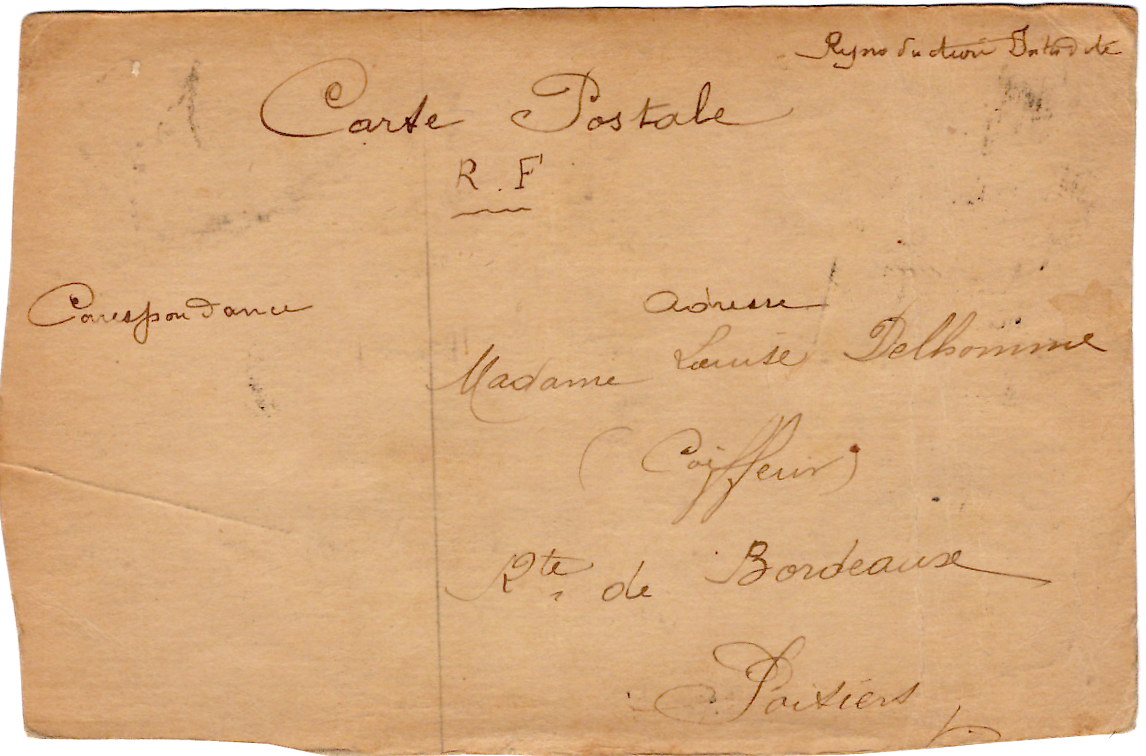 Reproduction Interdite
Carte Postale
R. F
Correspondance
adresse
Madame Louise Delhomme
(Coiffeur)
Rte de Bordeaux
Poitiers